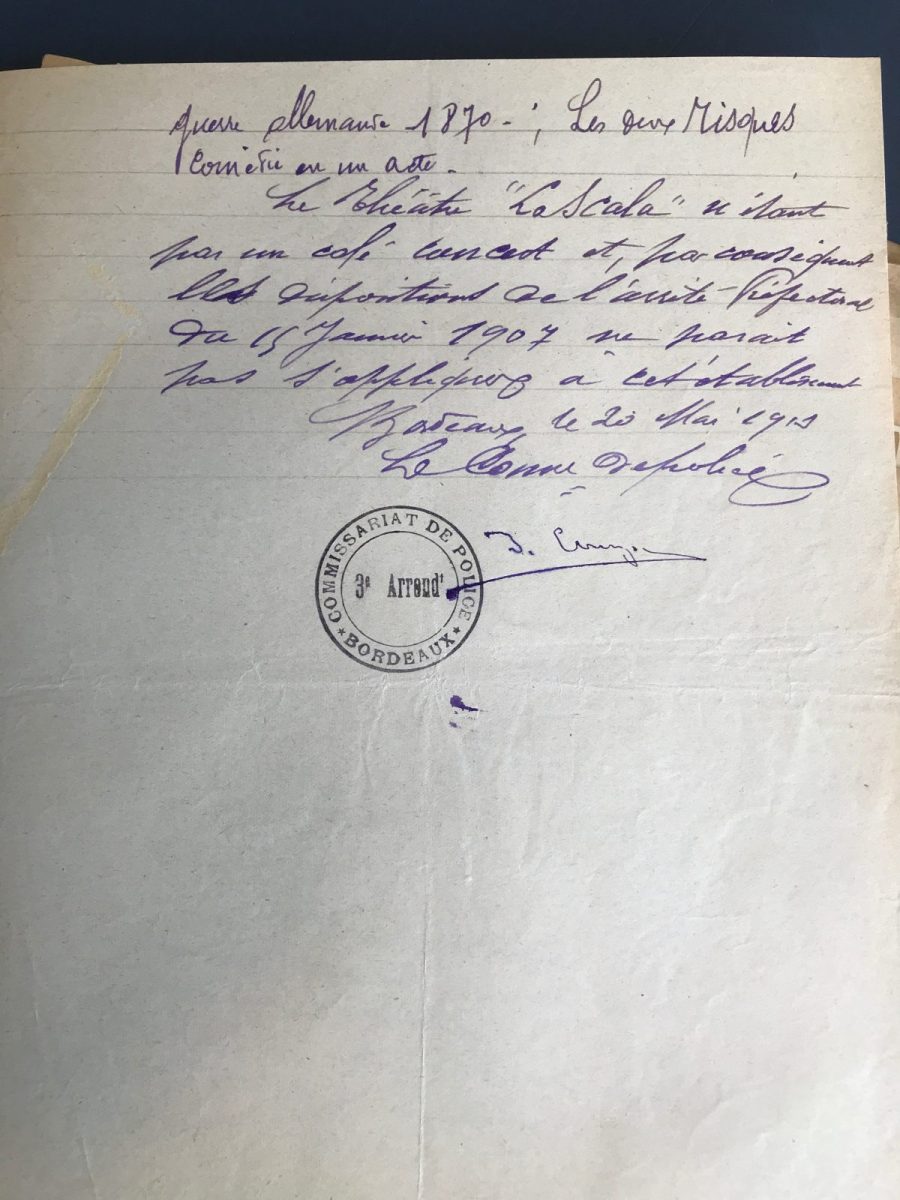 guerre allemande 1870 - ; Les deux Risques
Comédie en un acte -
Le Théâtre "La Scala" n'étant
pas un café concert et, par conséquent
les dispositions de l'arrêté Préfectoral
du 15 Janvier 1907 ne parait
pas s'appliquer à cet établissement
Bordeaux, le 20 Mai
Le Comre de police
COMMISSARIAT DE POLICE
3e Arrondt
* BORDEAUX *